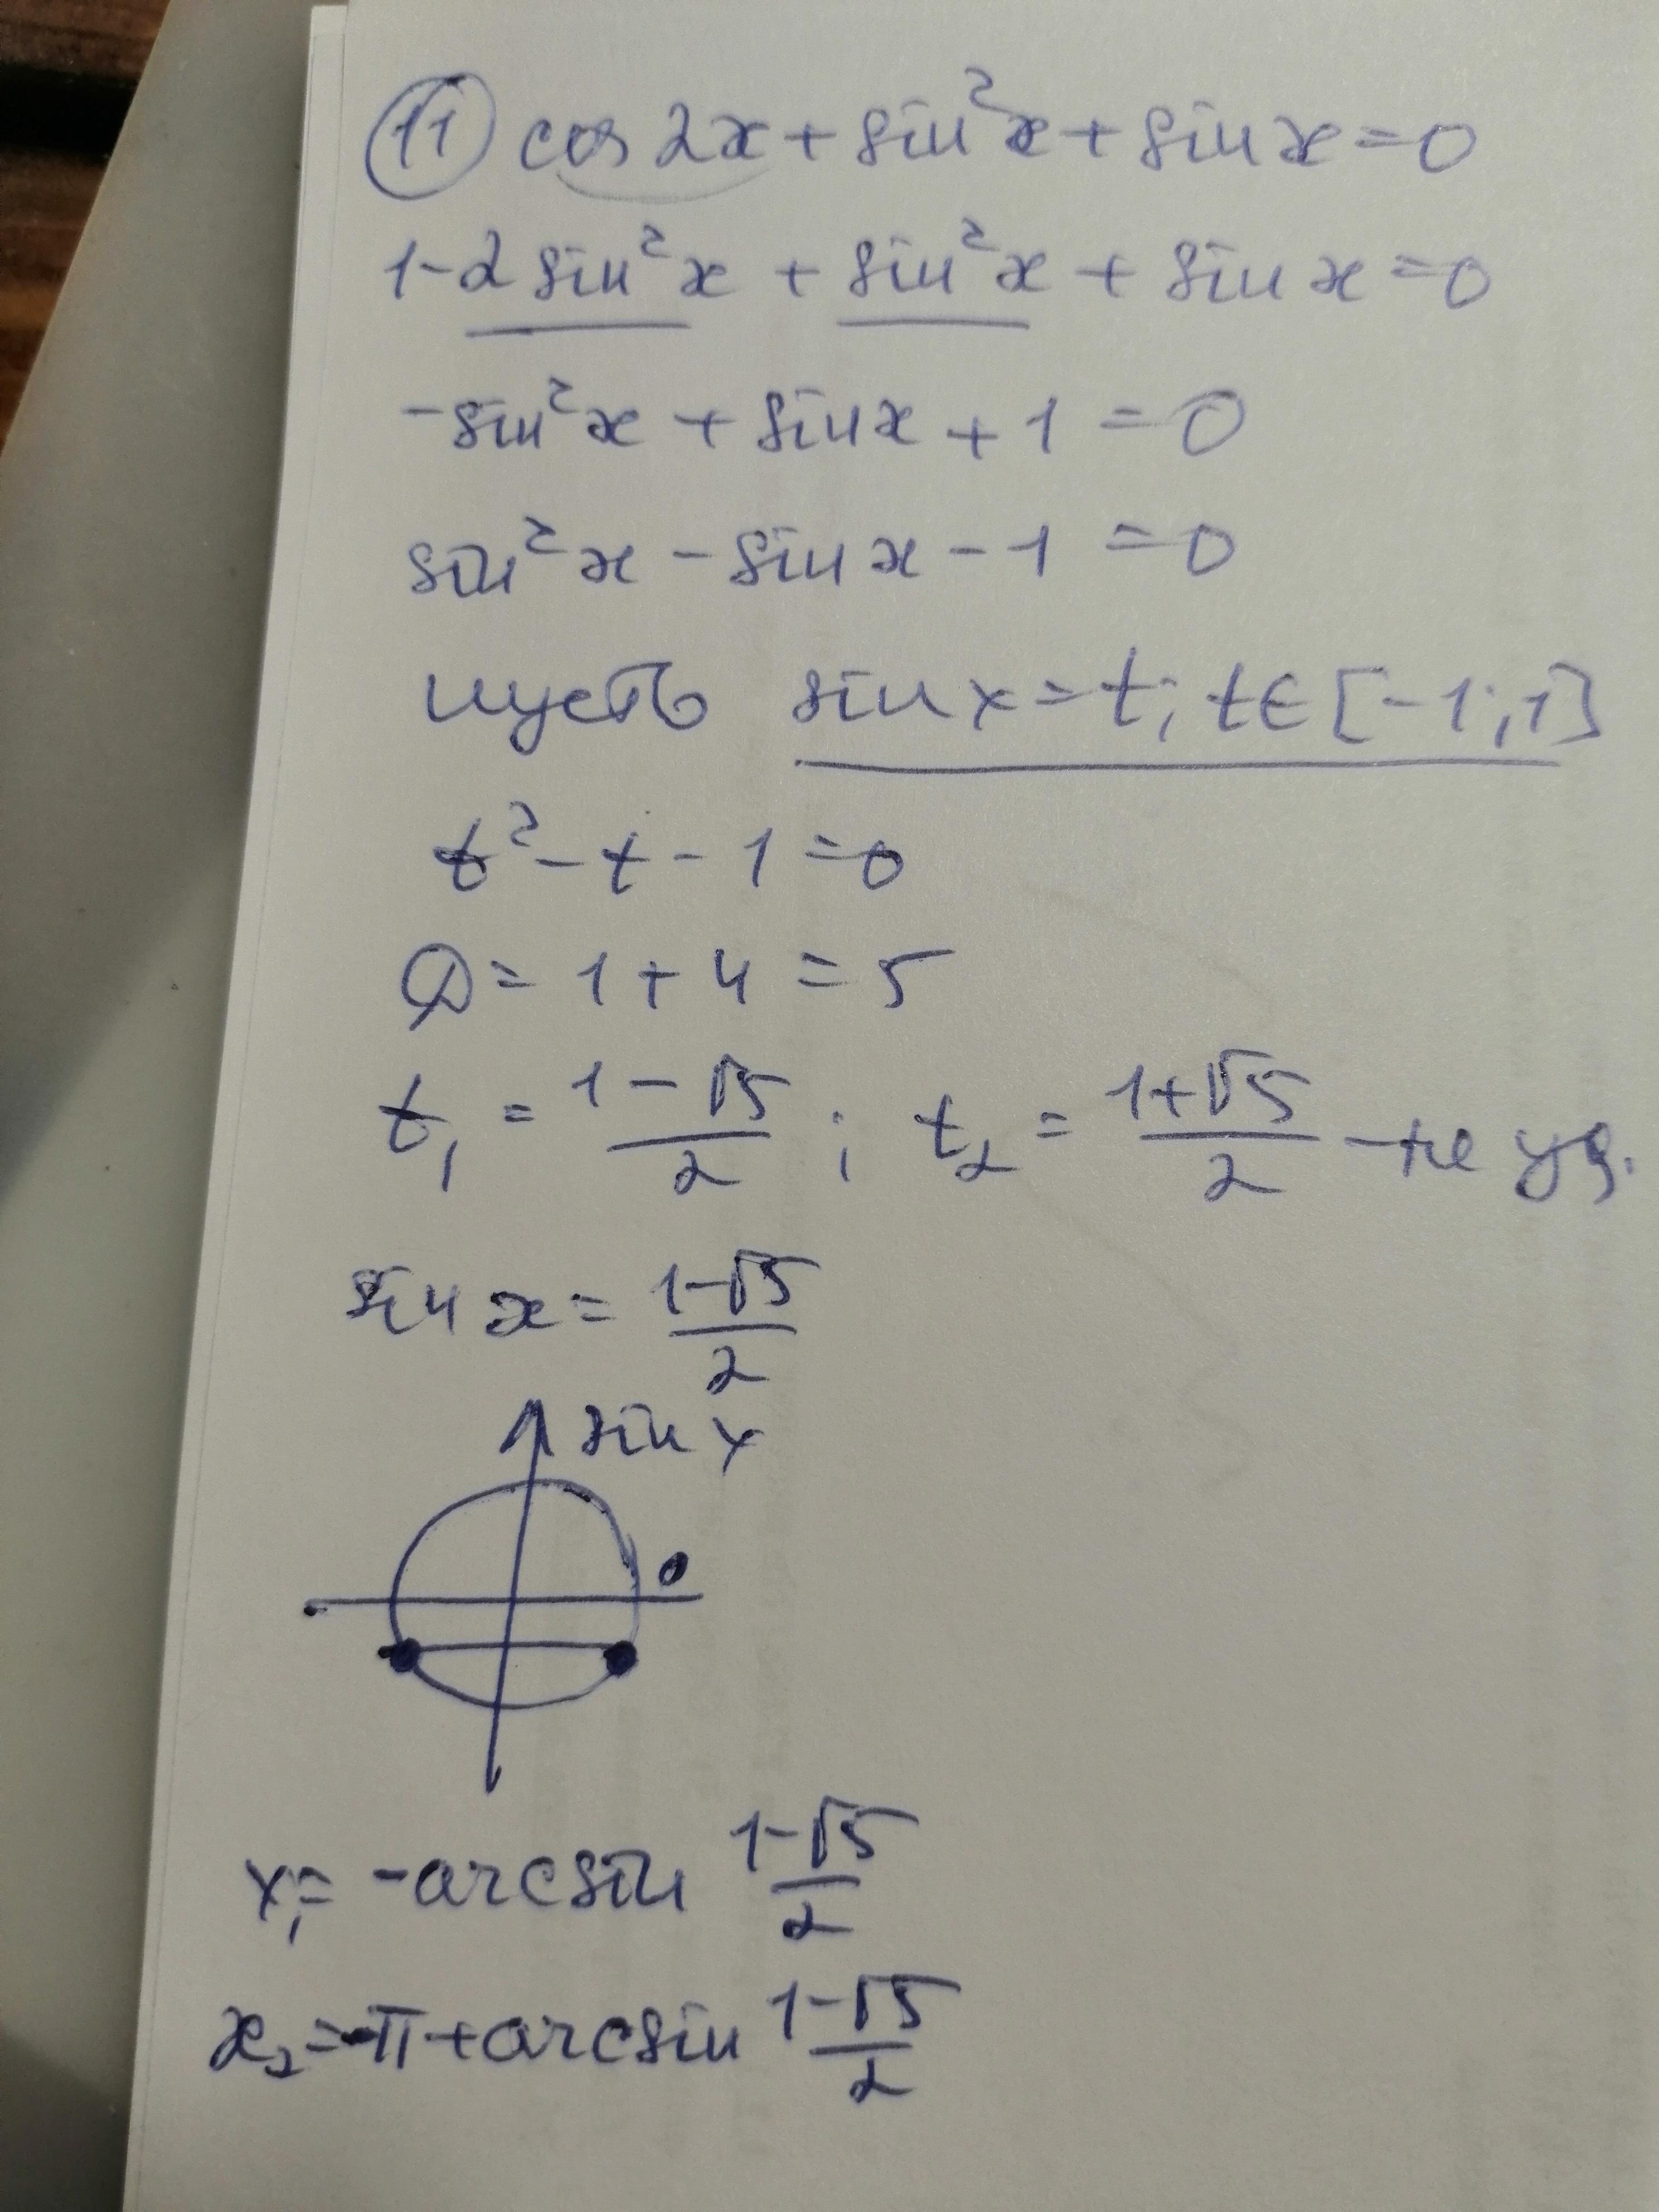 11 cos 2x + sin²x + sin x = 0
1 - 2 sin²x + sin²x + sin x = 0
- sin²x + sin x + 1 = 0
sin²x - sin x - 1 = 0
пусть sin x = t; t ∈ [-1; 1]
t² - t - 1 = 0
D = 1 + 4 = 5
t₁ = (1 - √5)/2 ; t₂ = (1 + √5)/2 - не уд.
sin x = (1 - √5)/2
sin x
0
x₁ = - arcsin (1 - √5)/2
x₂ = -π + arcsin (1 - √5)/2